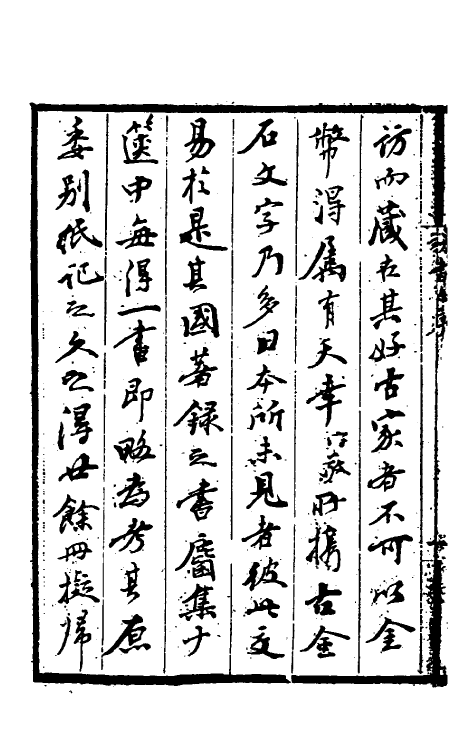 訪而藏在其好古家者不可以金
幣得屬有天幸守敬所攜古金
石文字乃多日本所未見者彼此交
易於是其國著錄之書麕集于
篋中每得一書即略為考其原
委別紙記之久之得廿餘冊擬歸